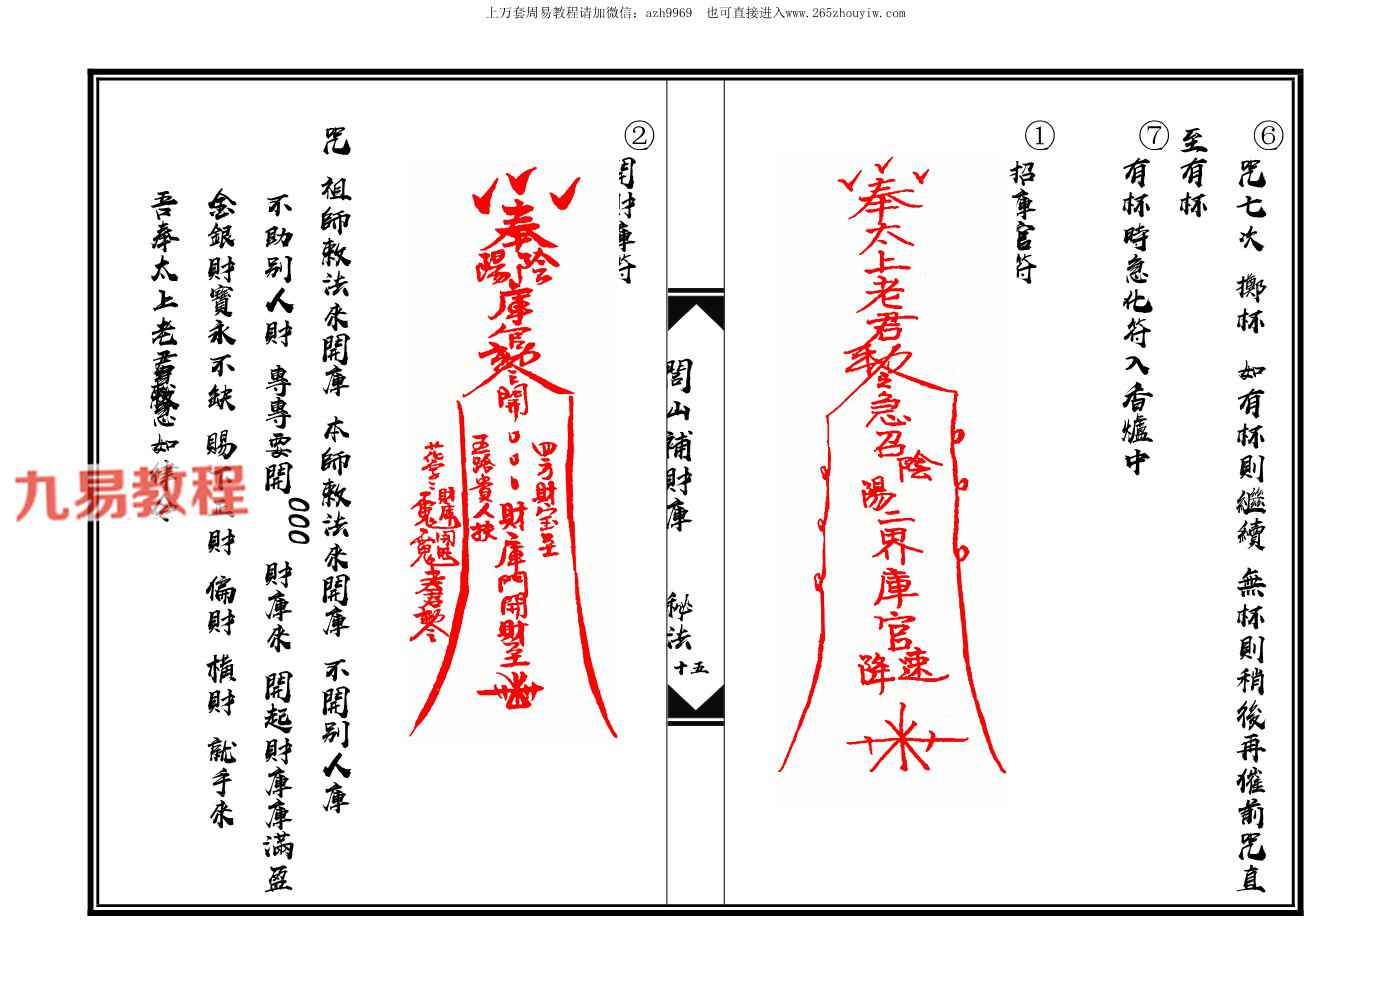 上万套周易教程请加微信：azh9969　也可直接进入www.265zhouyiw.com
⑥ 咒七次 擲杯 如有杯則繼續 無杯則稍後再催前咒直
至有杯
⑦ 有杯時急化符入香爐中
① 招庫官符
奉太上老君勅令急召陰陽二界庫官速降
閭山補財庫 秘法
十五
② 開財庫符
奉陰陽庫官勅令開
財庫門開財至
四方財宝呈
五路貴人扶
咒 祖師敕法來開庫 本師敕法來開庫 不開別人庫
不助別人財 專專要開 000 財庫來 開起財庫庫滿盈
金銀財寶永不缺 賜 財 偏財 橫財 就手來
吾奉太上老君 急如律令
九易教程